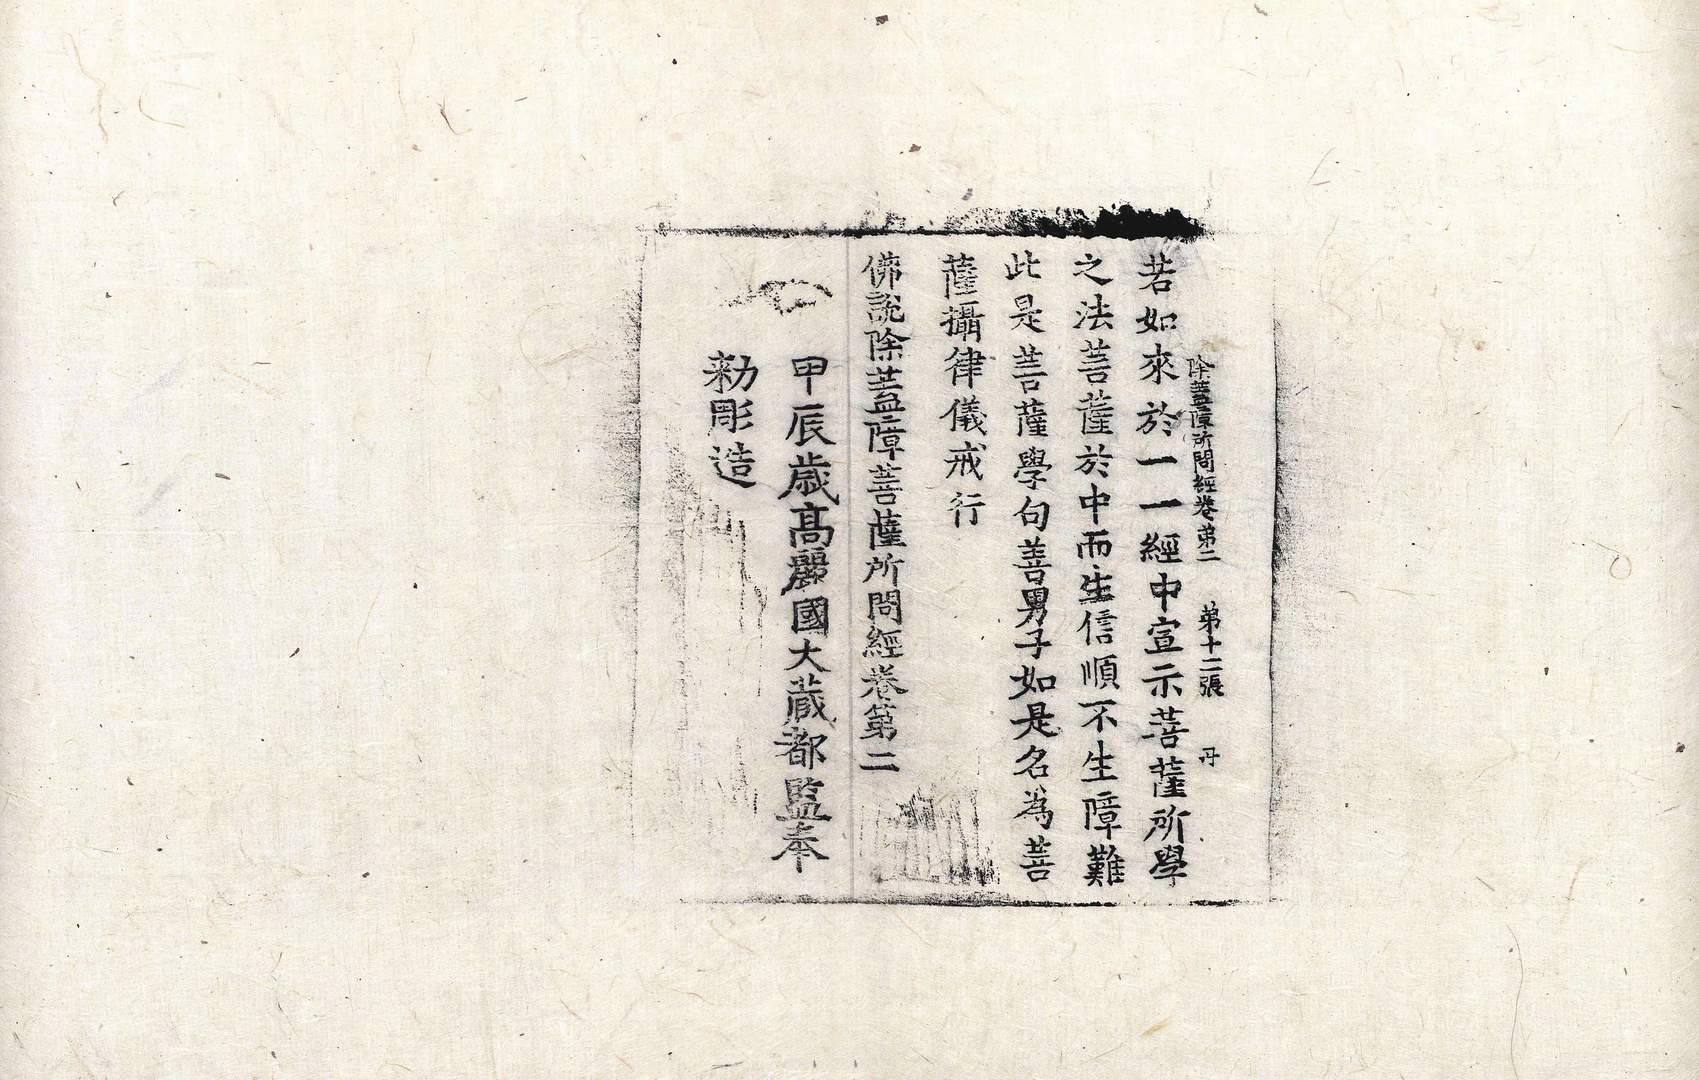 除蓋障所問經卷第二 第十二張 丹
若如來於一一經中宣示菩薩所學
之法菩薩於中而生信順不生障難
此是菩薩學句善男子如是名為菩
薩攝律儀戒行
佛說除蓋障菩薩所問經卷第二
甲辰歲高麗國大藏都監奉
勑彫造